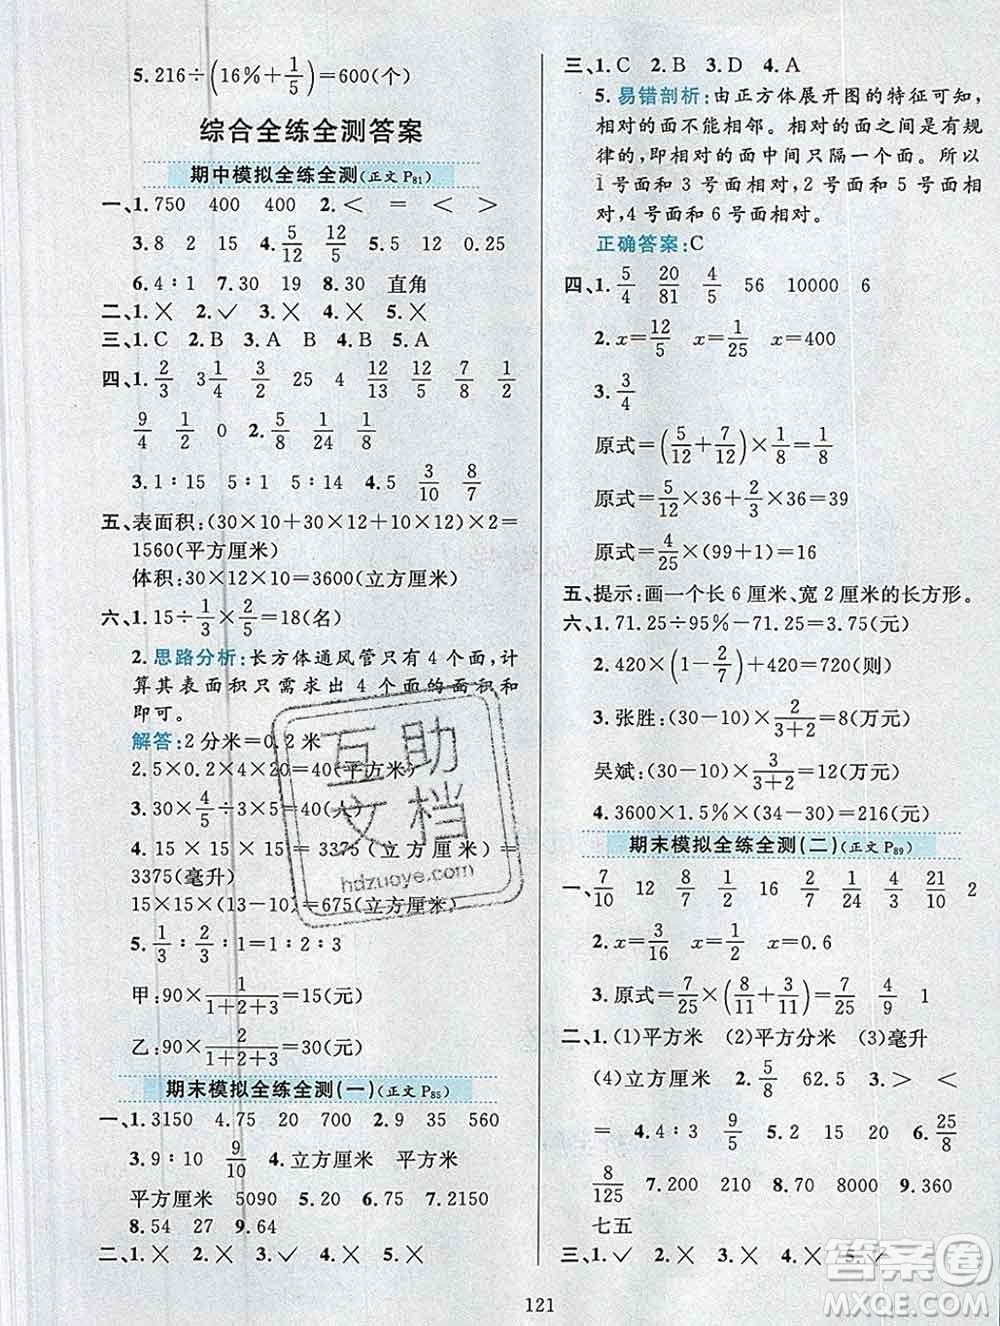 5.216÷(16%+1/5)=600(个)
综合全练全测答案
期中模拟全练全测(正文 P81)
一、1.750 400 400 2.< = < >
3.8 2 15 4.5/12 12/5 5.5 12 0.25
6.4∶1 7.30 19 8.30 直角
二、1.× 2.✓ 3.× 4.× 5.×
三、1.C 2.B 3.A B 4.B 5.A
四、1.2/3 3 1/4 3/2 25 4 12/13 12/5 7/8
9/4 1/2 0 2.5/8 1/24 1/8
3.1∶15 5∶1 5∶14 4.5 3/10 8/7
五、表面积:(30×10+30×12+10×12)×2=
1560(平方厘米)
体积:30×12×10=3600(立方厘米)
六、1.15÷1/3×2/5=18(名)
2.思路分析:长方体通风管只有 4 个面,计
算其表面积只需求出 4 个面的面积和
即可。
解答:2 分米=0.2 米
2.5×0.2×4×20=40(平方米)
3.30×4/5÷3×5=40(人)
4.15×15×15=3375(立方厘米)=
3375(毫升)
15×15×(18-15)=675(立方厘米)
5.1/3∶2/3∶1=1∶2∶3
甲:90×1/(1+2+3)=15(元)
乙:90×2/(1+2+3)=30(元)
期末模拟全练全测(一)(正文 P85)
一、1.3150 4.75 20 700 2.9 35 560
3.9∶10 9/10 4.立方厘米 平方米
平方厘米 5090 5.20 6.75 7.2150
8.54 27 9.64
二、1.× 2.× 3.✓ 4.× 5.×
三、1.C 2.B 3.D 4.A
5.易错剖析:由正方体展开图的特征可知,
相对的面不能相邻。相对的面之间是有规
律的,即相对的面中间只隔一个面。所以
1 号面和 3 号面相对,2 号面和 5 号面相
对,4 号面和 6 号面相对。
正确答案:C
四、1.5/4 20/81 4/5 56 10000 6
2.x=12/5 x=1/25 x=400
3.3/4
原式=(5/12+7/12)×1/8=1/8
原式=5/12×36+2/3×36=39
原式=4/25×(99+1)=16
五、提示:画一个长 6 厘米、宽 2 厘米的长方形。
六、1.71.25÷95%-71.25=3.75(元)
2.420×(1-2/7)+420=720(则)
3.张胜:(30-10)×2/(3+2)=8(万元)
吴斌:(30-10)×3/(3+2)=12(万元)
4.3600×1.5%×(34-30)=216(元)
期末模拟全练全测(二)(正文 P89)
一、7/10 12 8/7 1/2 16 2/7 1/2 4/9 21/10 2
2.x=3/16 x=1/2 x=0.6
3.原式=7/25×(8/11+3/11)=7/25 4/9 1
二、1.(1)平方米 (2)平方分米 (3)毫升
(4)立方厘米 2.5/8 62.5 3.> <
= 4.4∶3 9/5 5.12 15 20 6.25
8/125 7.200 250 8.20 8000 9.360
七五
三、1.✓ 2.× 3.× 4.× 5.✓
121
互助
文档
hdzuoye.com
答案圈
MXQE.COM